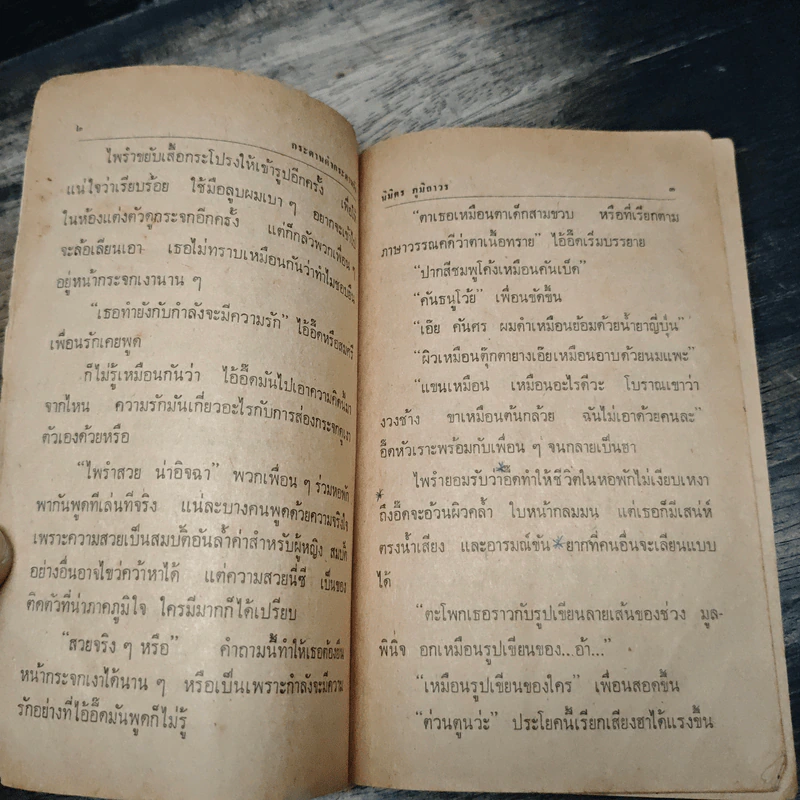 ๒
กระดานดำกระดาน
ไพรำขยับเสื้อกระโปรงให้เข้ารูปอีกครั้ง เพื่อให้
แน่ใจว่าเรียบร้อย ใช้มือลูบผมเบา ๆ อยากจะเข้าไป
ในห้องแต่งตัวดูกระจกอีกครั้ง แต่ก็กลัวพวกเพื่อน ๆ
จะล้อเลียนเอา เธอไม่ทราบเหมือนกันว่าทำไมชอบยืน
อยู่หน้ากระจกเงานาน ๆ
“เธอทำยังกับกำลังจะมีความรัก” ไอ้อี๊ดหรือสมศรี
เพื่อนรักเคยพูด
ก็ไม่รู้เหมือนกันว่า ไอ้อี๊ดมันไปเอาความคิดนี้มา
จากไหน ความรักมันเกี่ยวอะไรกับการส่องกระจกดูเงา
ตัวเองด้วยหรือ
“ไพรำสวย น่าอิจฉา” พวกเพื่อน ๆ ร่วมหอพัก
พากันพูดทีเล่นทีจริง แน่ละบางคนพูดด้วยความจริงใจ
เพราะความสวยเป็นสมบัติอันล้ำค่าสำหรับผู้หญิง สมบัติ
อย่างอื่นอาจไขว่คว้าหาได้ แต่ความสวยนี่ซี เป็นของ
ติดตัวที่น่าภาคภูมิใจ ใครมีมากก็ได้เปรียบ
“สวยจริง ๆ หรือ” คำถามนี้ทำให้เธอต้องยืน
หน้ากระจกเงาได้นาน ๆ หรือเป็นเพราะกำลังจะมีความ
รักอย่างที่ไอ้อี๊ดมันพูดก็ไม่รู้
นิมิตร ภูมิถาวร
๓
“ตาเธอเหมือนตาเด็กสามขวบ หรือที่เรียกตาม
ภาษาวรรณคดีว่าตาเนื้อทราย” ไอ้อี๊ดเริ่มบรรยาย
“ปากสีชมพูโค้งเหมือนคันเบ็ด”
“คันธนูโว้ย” เพื่อนขัดขึ้น
“เอ๊ย คันศร ผมดำเหมือนย้อมด้วยน้ำยาญี่ปุ่น”
“ผิวเหมือนตุ๊กตายางเอ๊ยเหมือนอาบด้วยนมแพะ”
“แขนเหมือน เหมือนอะไรดีวะ โบราณเขาว่า
งวงช้าง ขาเหมือนต้นกล้วย ฉันไม่เอาด้วยคนละ”
อี๊ดหัวเราะพร้อมกับเพื่อน ๆ จนกลายเป็นฮา
ไพรำยอมรับว่าอี๊ดทำให้ชีวิตในหอพักไม่เงียบเหงา
ถึงอี๊ดจะอ้วนผิวคล้ำ ใบหน้ากลมมน แต่เธอก็มีเสน่ห์
ตรงน้ำเสียง และอารมณ์ขัน ยากที่คนอื่นจะเลียนแบบ
ได้
“ตะโพกเธอราวกับรูปเขียนลายเส้นของช่วง มูล-
พินิจ อกเหมือนรูปเขียนของ...อ้า...”
“เหมือนรูปเขียนของใคร” เพื่อนสอดขึ้น
“ต่วนตูนว่ะ” ประโยคนี้เรียกเสียงฮาได้แรงขึ้น